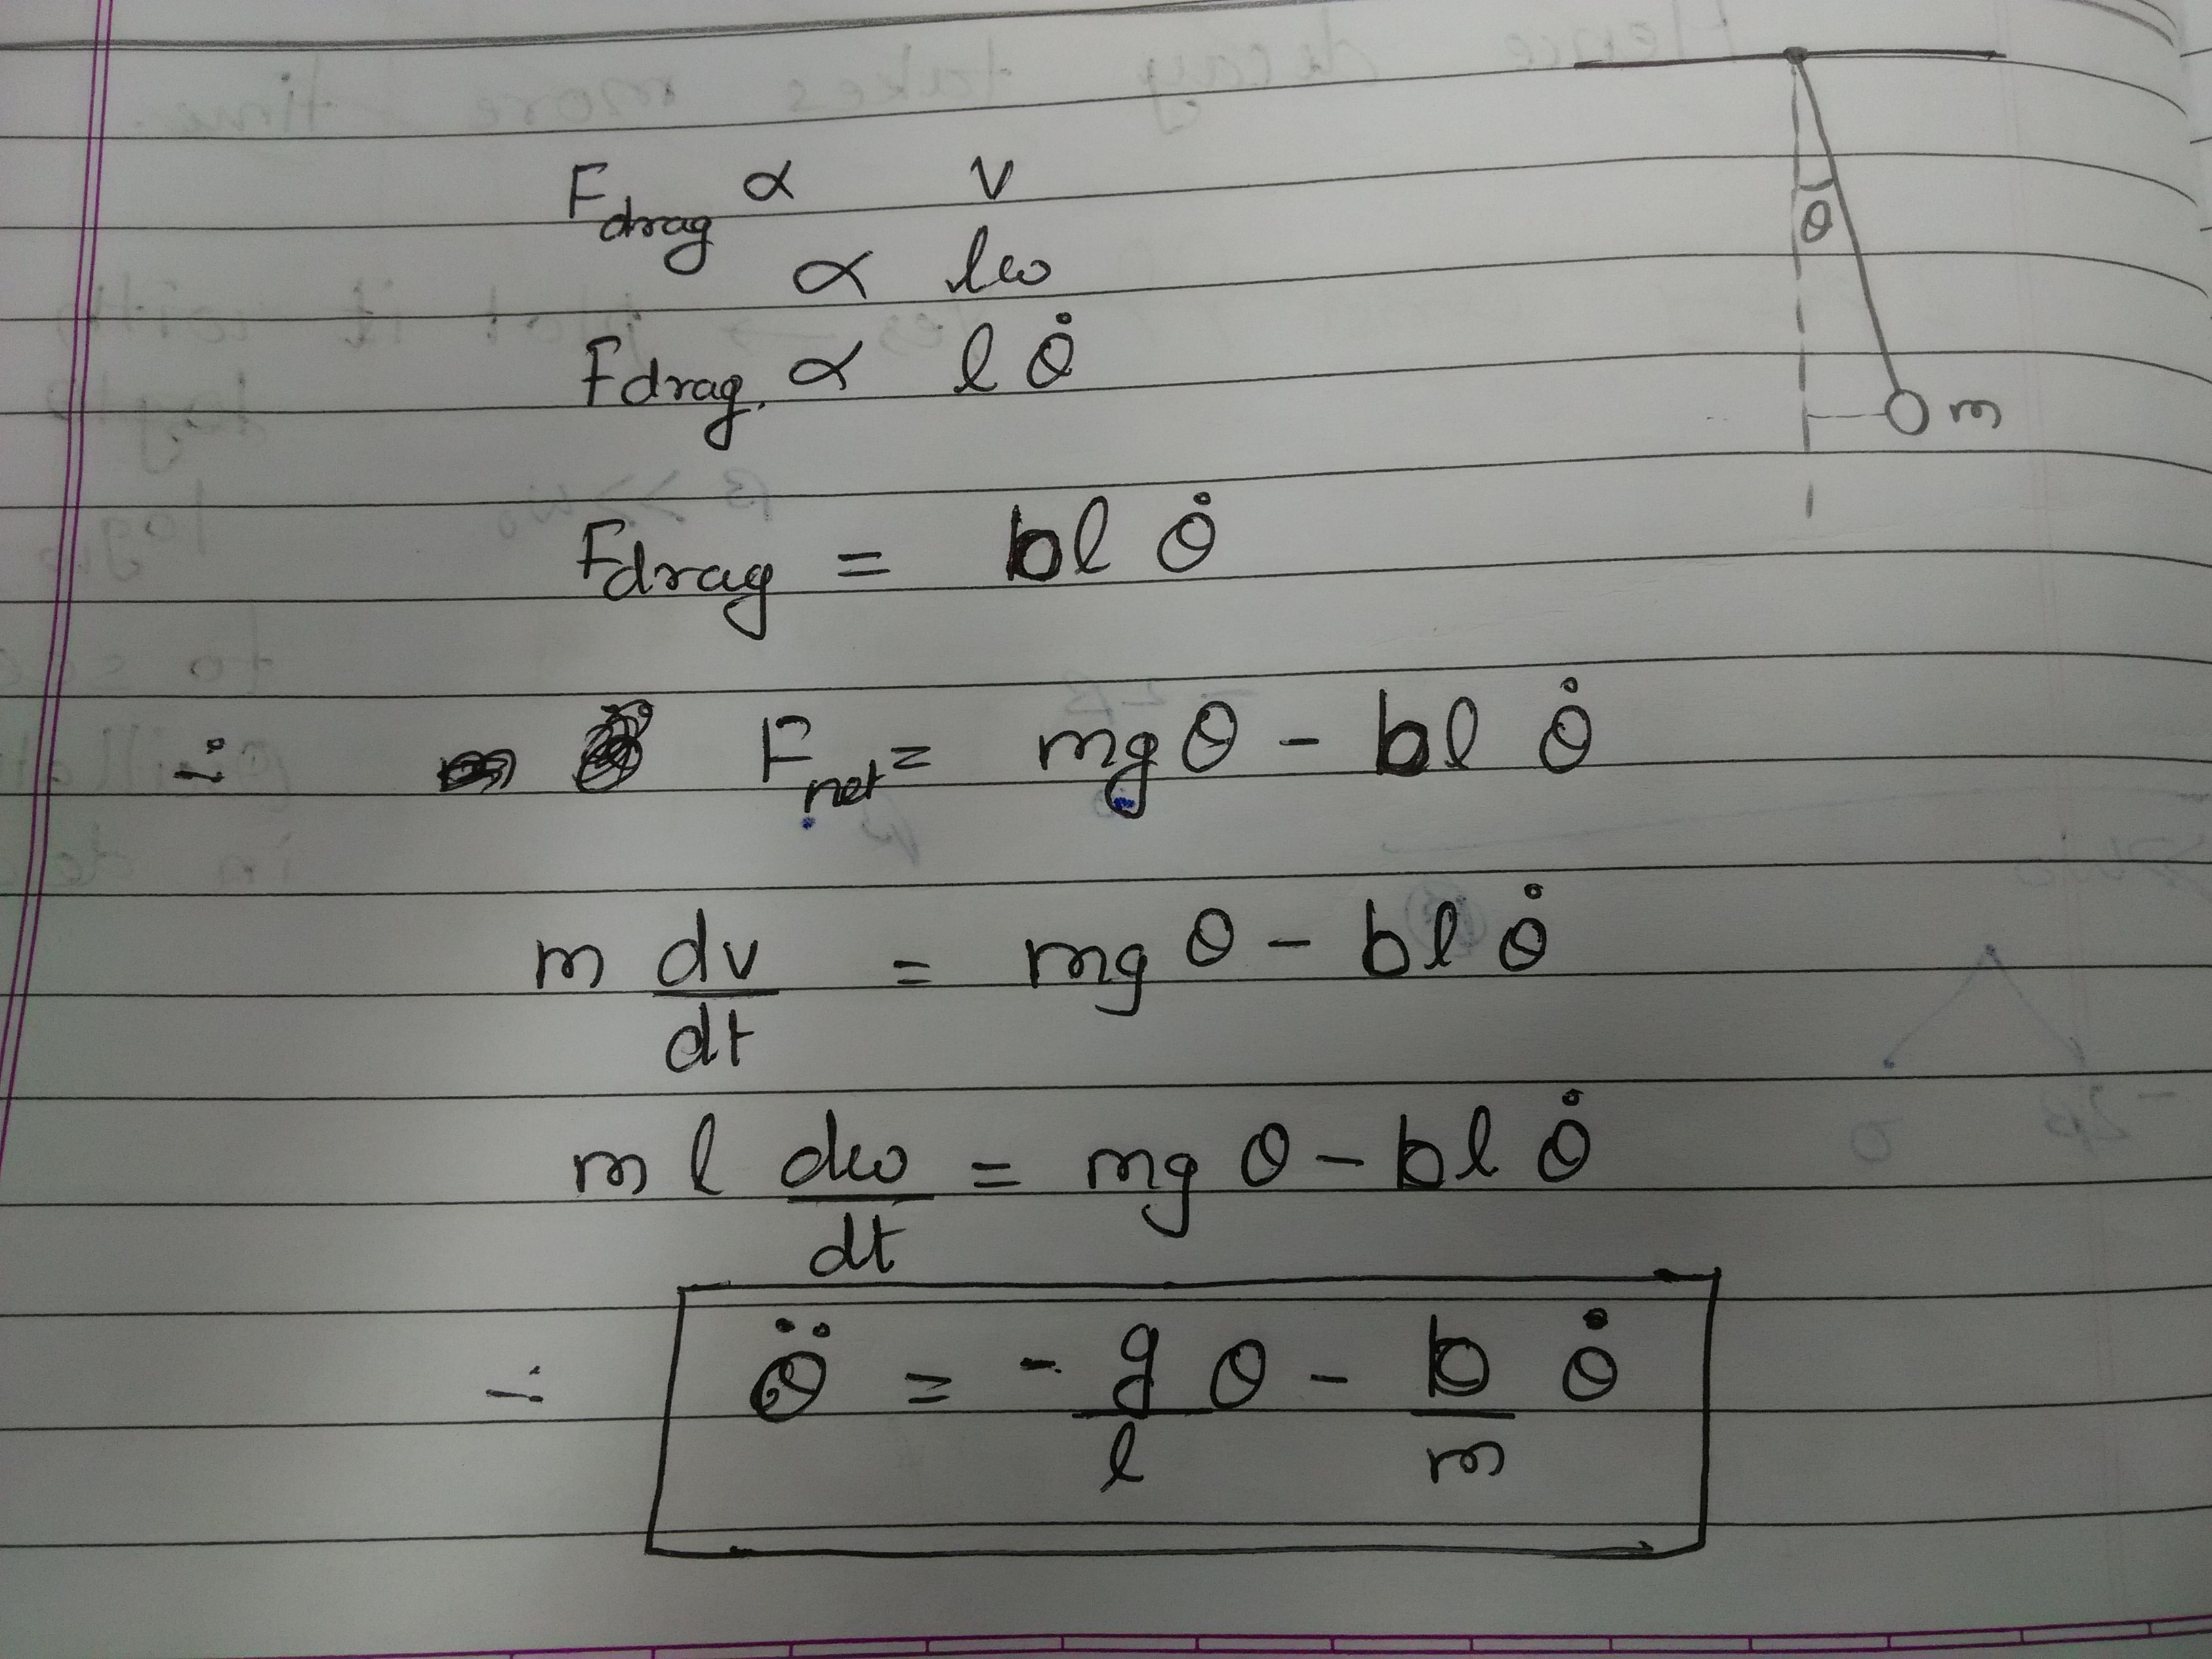 F_drag ∝ v
∝ lω
F_drag ∝ l θ̇
θ
m
F_drag = bl θ̇
∴ F_net = mg θ - bl θ̇
m dv/dt = mg θ - bl θ̇
m l dω/dt = mg θ - bl θ̇
∴ θ̈ = - g/l θ - b/m θ̇